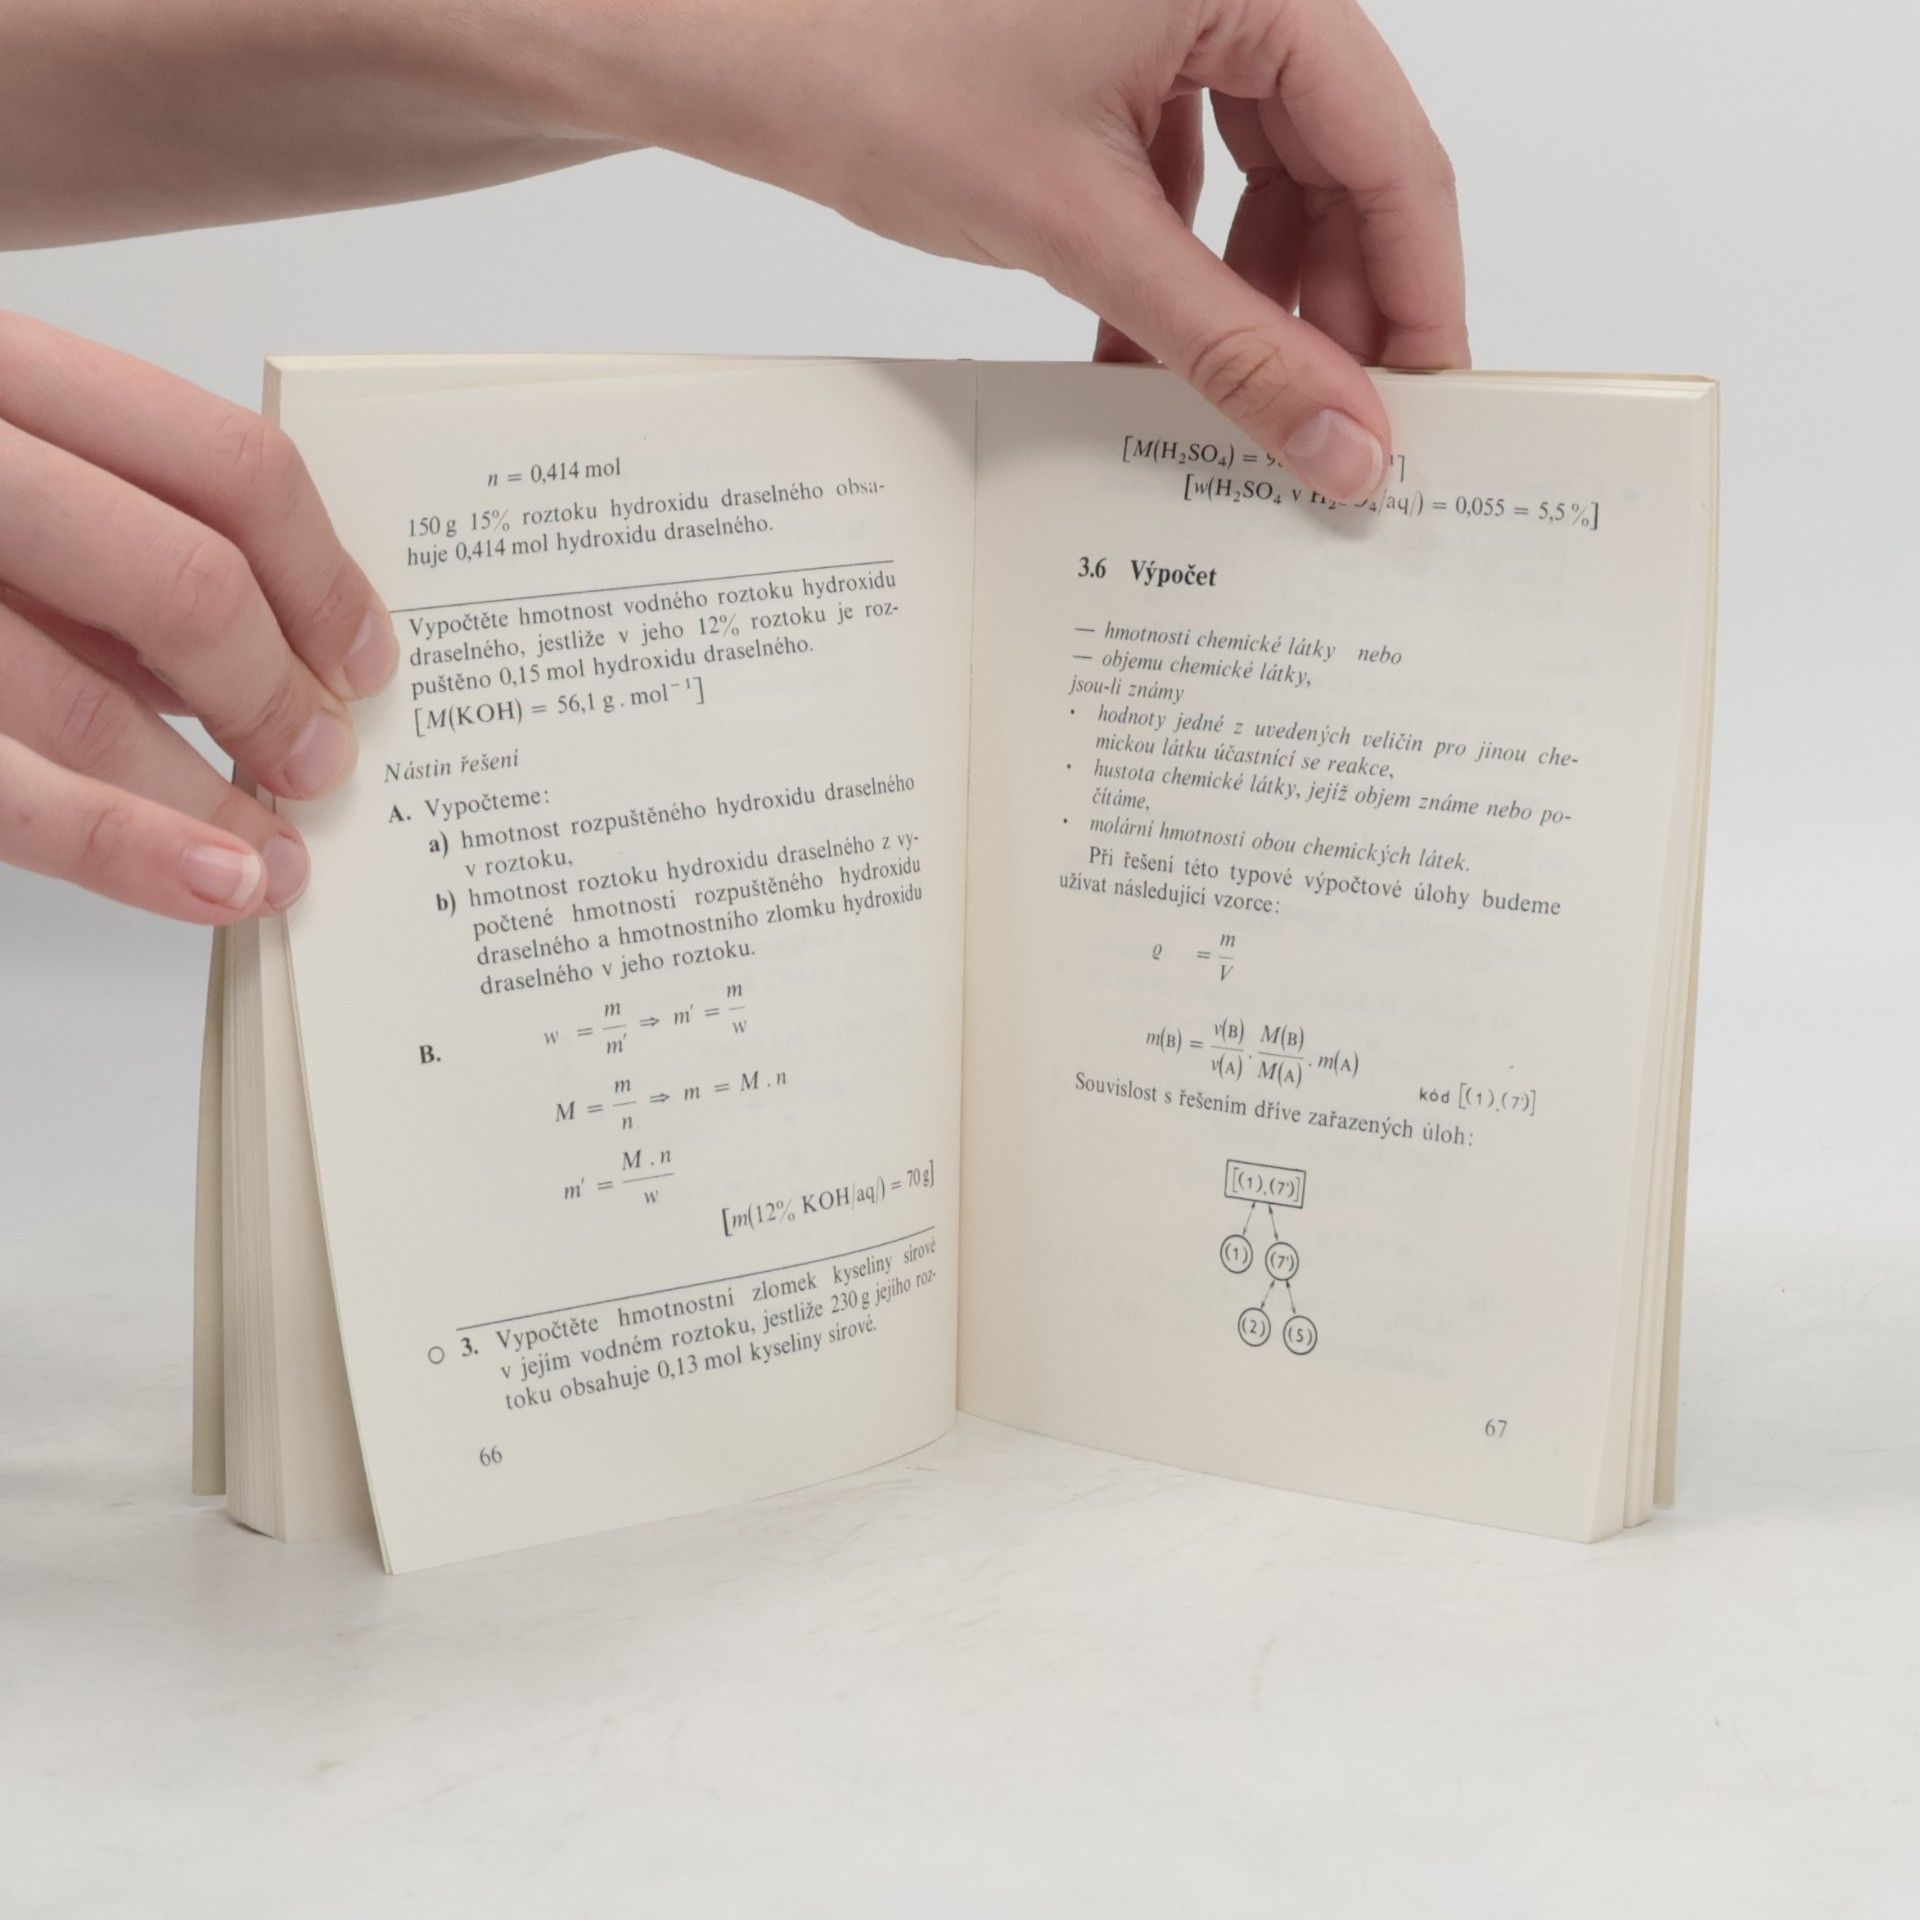 n = 0,414 mol
150 g 15% roztoku hydroxidu draselného obsa-
huje 0,414 mol hydroxidu draselného.
Vypočtěte hmotnost vodného roztoku hydroxidu
draselného, jestliže v jeho 12% roztoku je roz-
puštěno 0,15 mol hydroxidu draselného.
[M(KOH) = 56,1 g . mol⁻¹]
Nástin řešení
A. Vypočteme:
a) hmotnost rozpuštěného hydroxidu draselného
v roztoku,
b) hmotnost roztoku hydroxidu draselného z vy-
počtené hmotnosti rozpuštěného hydroxidu
draselného a hmotnostního zlomku hydroxidu
draselného v jeho roztoku.
B. w = m/m′ ⇒ m′ = m/w
M = m/n ⇒ m = M . n
m′ = M . n/w
[m(12% KOH/aq/) = 70 g]
3. Vypočtěte hmotnostní zlomek kyseliny sírové
v jejím vodném roztoku, jestliže 230 g jejího roz-
toku obsahuje 0,13 mol kyseliny sírové.
66
[M(H₂SO₄) =
[w(H₂SO₄ v /aq/) = 0,055 = 5,5 %]
3.6 Výpočet
— hmotnosti chemické látky nebo
— objemu chemické látky,
jsou-li známy
· hodnoty jedné z uvedených veličin pro jinou che-
mickou látku účastnící se reakce,
· hustota chemické látky, jejíž objem známe nebo po-
čítáme,
· molární hmotnosti obou chemických látek.
Při řešení této typové výpočtové úlohy budeme
užívat následující vzorce:
ϱ = m/V
m(B) = ν(B)/ν(A) . M(B)/M(A) . m(A)
kód [(1),(7')]
Souvislost s řešením dříve zařazených úloh:
[(1),(7')]
(1) (7')
(2) (5)
67